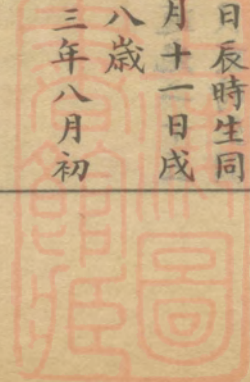 日辰時生同
月十一日戌
八歳
三年八月初
圖